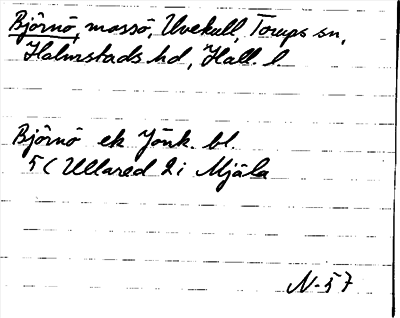 Björnö, mossö, Ulvekull, Torups sn,
Halmstads hd, Hall. l
Björnö ek Jönk. bl.
5 ( Ullared 2 i Mjäla
N-57